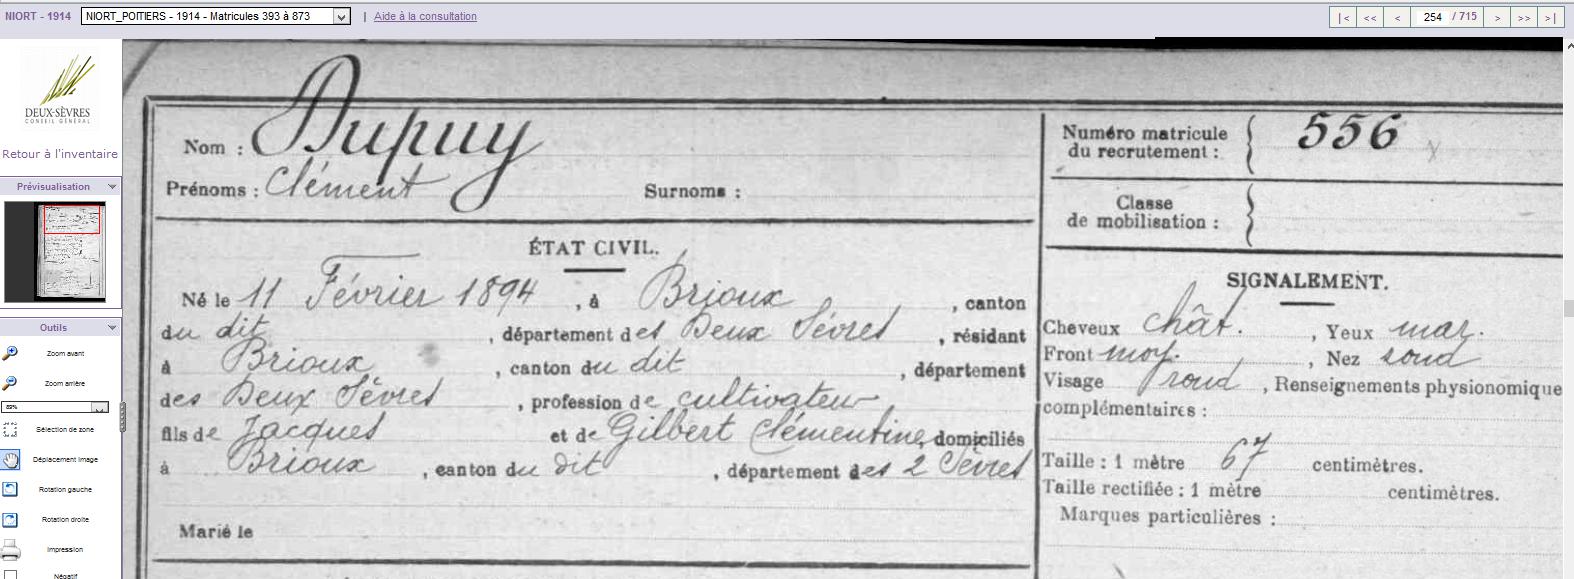 NIORT - 1914 NIORT_POITIERS - 1914 - Matricules 393 à 873 | Aide à la consultation |< << < 254 / 715 > >> >|
DEUX-SÈVRES
CONSEIL GÉNÉRAL
Retour à l'inventaire
Prévisualisation
Outils
Zoom avant
Zoom arrière
89%
Sélection de zone
Déplacement image
Rotation gauche
Rotation droite
Impression
Négatif
Nom : Dupuy
Prénoms : Clément Surnoms :
ÉTAT CIVIL.
Né le 11 Février 1894, à Brioux, canton
du dit, département des Deux Sèvres, résidant
à Brioux, canton du dit, département
des Deux Sèvres, profession de cultivateur
fils de Jacques et de Gilbert Clémentine, domiciliés
à Brioux, canton du dit, département des 2 Sèvres
Marié le
Numéro matricule
du recrutement : 556
Classe
de mobilisation :
SIGNALEMENT.
Cheveux chât., Yeux mar.
Front moy., Nez
Visage, Renseignements physionomique
complémentaires :
Taille : 1 mètre 67 centimètres.
Taille rectifiée : 1 mètre centimètres.
Marques particulières :